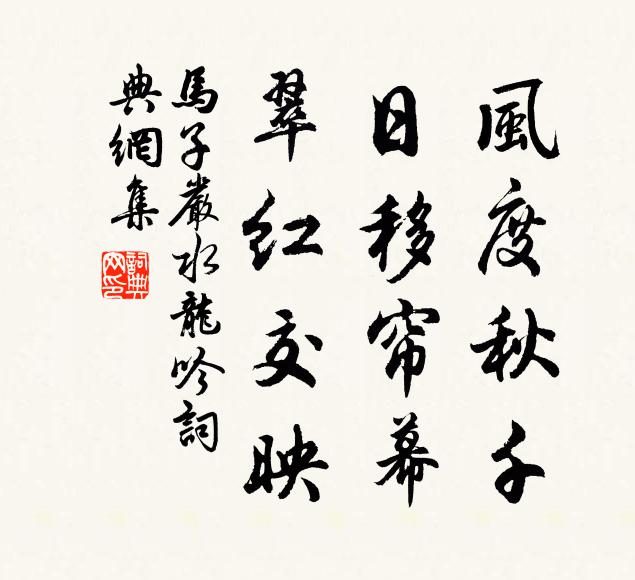 風度秋千
日移帘幕
翠红交映
馬子嚴水龍吟詞
典網集
詞典网印